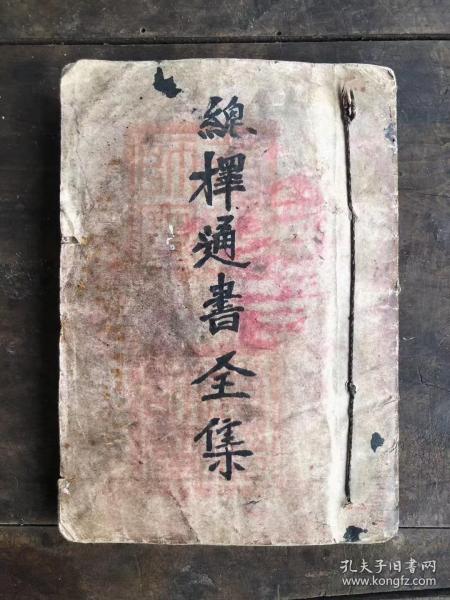 總擇通書全集
孔夫子旧书网
www.kongfz.com